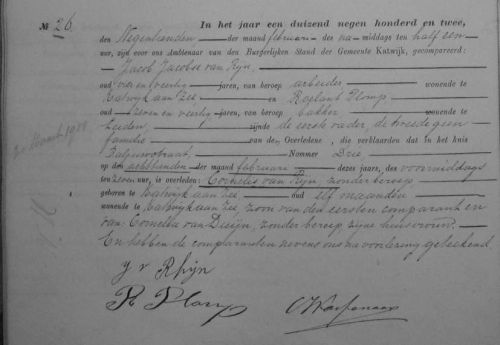 № 26. In het jaar een duizend negen honderd en twee,
den Negentienden der maand februari des na-middags ten half een
ure, zijn voor ons Ambtenaar van den Burgerlijken Stand der Gemeente Katwijk, gecompareerd:
Jacob Jacobse van Rijn,
oud vier en veertig jaren, van beroep arbeider wonende te
Katwijk aan Zee en Roeland Plomp
oud zeven en veertig jaren, van beroep bakker wonende te
Leiden, zijnde de eerste vader, de tweede geen
familie van den Overledene, die verklaarden dat In het huis
straat, Nommer Drie,
op den achttienden der maand februari dezes jaars, des voormiddags
ten zeven ure, is overleden: Cornelis van Rijn, zonder beroep
geboren te Katwijk aan Zee oud elf maanden
wonende te Katwijk aan Zee, zoon van den eersten comparant en
van Cornelia van Duijn, zonder beroep zijne huisvrouw.
En hebben de comparanten nevens ons na voorlezing geteekend.
J v Rhijn
R Plomp